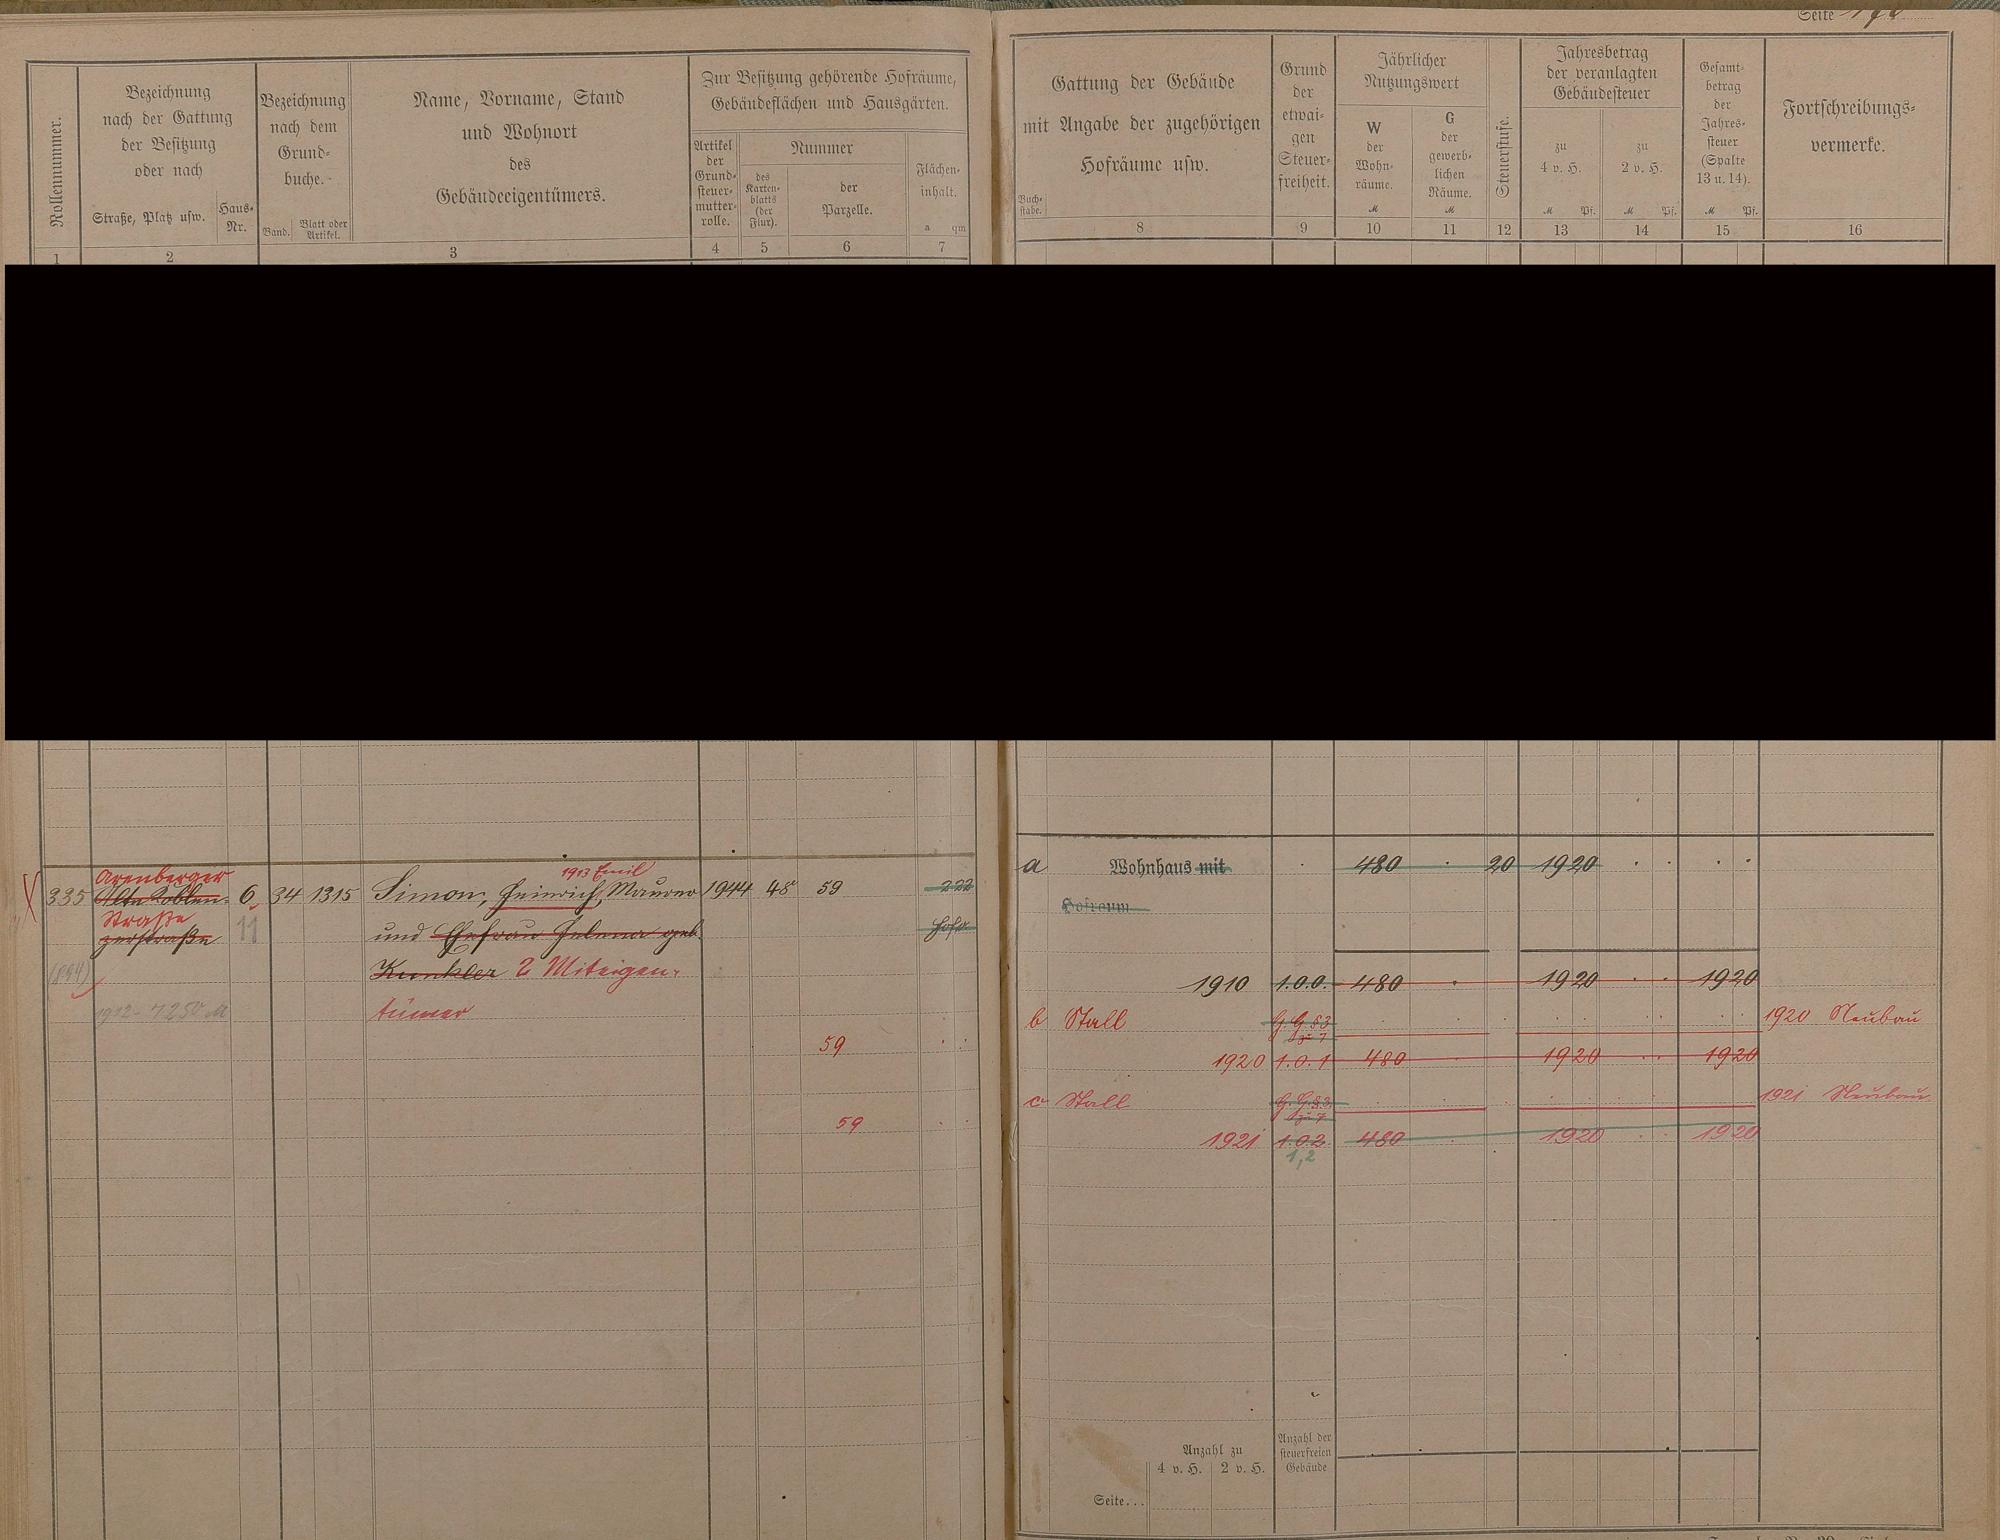 Seite
Rollennummer.
Bezeichnung
nach der Gattung
der Besitzung
oder nach
Straße, Platz usw.
Haus-
Nr.
Bezeichnung
nach dem
Grund-
buche.
Band.
Blatt oder
Artikel.
Name, Vorname, Stand
und Wohnort
des
Gebäudeeigentümers.
Zur Besitzung gehörende Hofräume,
Gebäudeflächen und Hausgärten.
Artikel
der
Grund-
steuer-
mutter-
rolle.
Nummer
des
Karten-
blatts
(der
Flur).
der
Parzelle.
Flächen-
inhalt.
a qm
1 2 3 4 5 6 7
Gattung der Gebäude
mit Angabe der zugehörigen
Hofräume usw.
Buch-
stabe.
Grund
der
etwai-
gen
Steuer-
freiheit.
Jährlicher
Nutzungswert
W
der
Wohn-
räume.
M
G
der
gewerb-
lichen
Räume.
M
Steuerstufe.
Jahresbetrag
der veranlagten
Gebäudesteuer
zu
4 v. H.
M Pf.
zu
2 v. H.
M Pf.
Gesamt-
betrag
der
Jahres-
steuer
(Spalte
13 u. 14).
M Pf.
Fortschreibungs-
vermerke.
8 9 10 11 12 13 14 15 16
Arenberger 1913 Emil
335 Alte Koblen- 6 34 1315 Simon, Heinrich, Maurer 1944 48 59 222
Straße
zerstraße 11 und Ehefrau Helena geb. Hofr
(894) Kunkler 2 Miteigen-
1912 - 7250 M tümer
59
59
a Wohnhaus mit 480 20 1920
Hofraum
1910 1.0.0. 480 1920 1920
b Stall G. G. §3 1920 Neubau
zu 7
1920 1.0.1 480 1920 1920
c Stall G. G. §3 1921 Neubau
zu 7
1921 1.0.2 480 1920 1920
1,2
Anzahl zu
4 v. H. 2 v. H.
Anzahl der
steuerfreien
Gebäude
Seite...